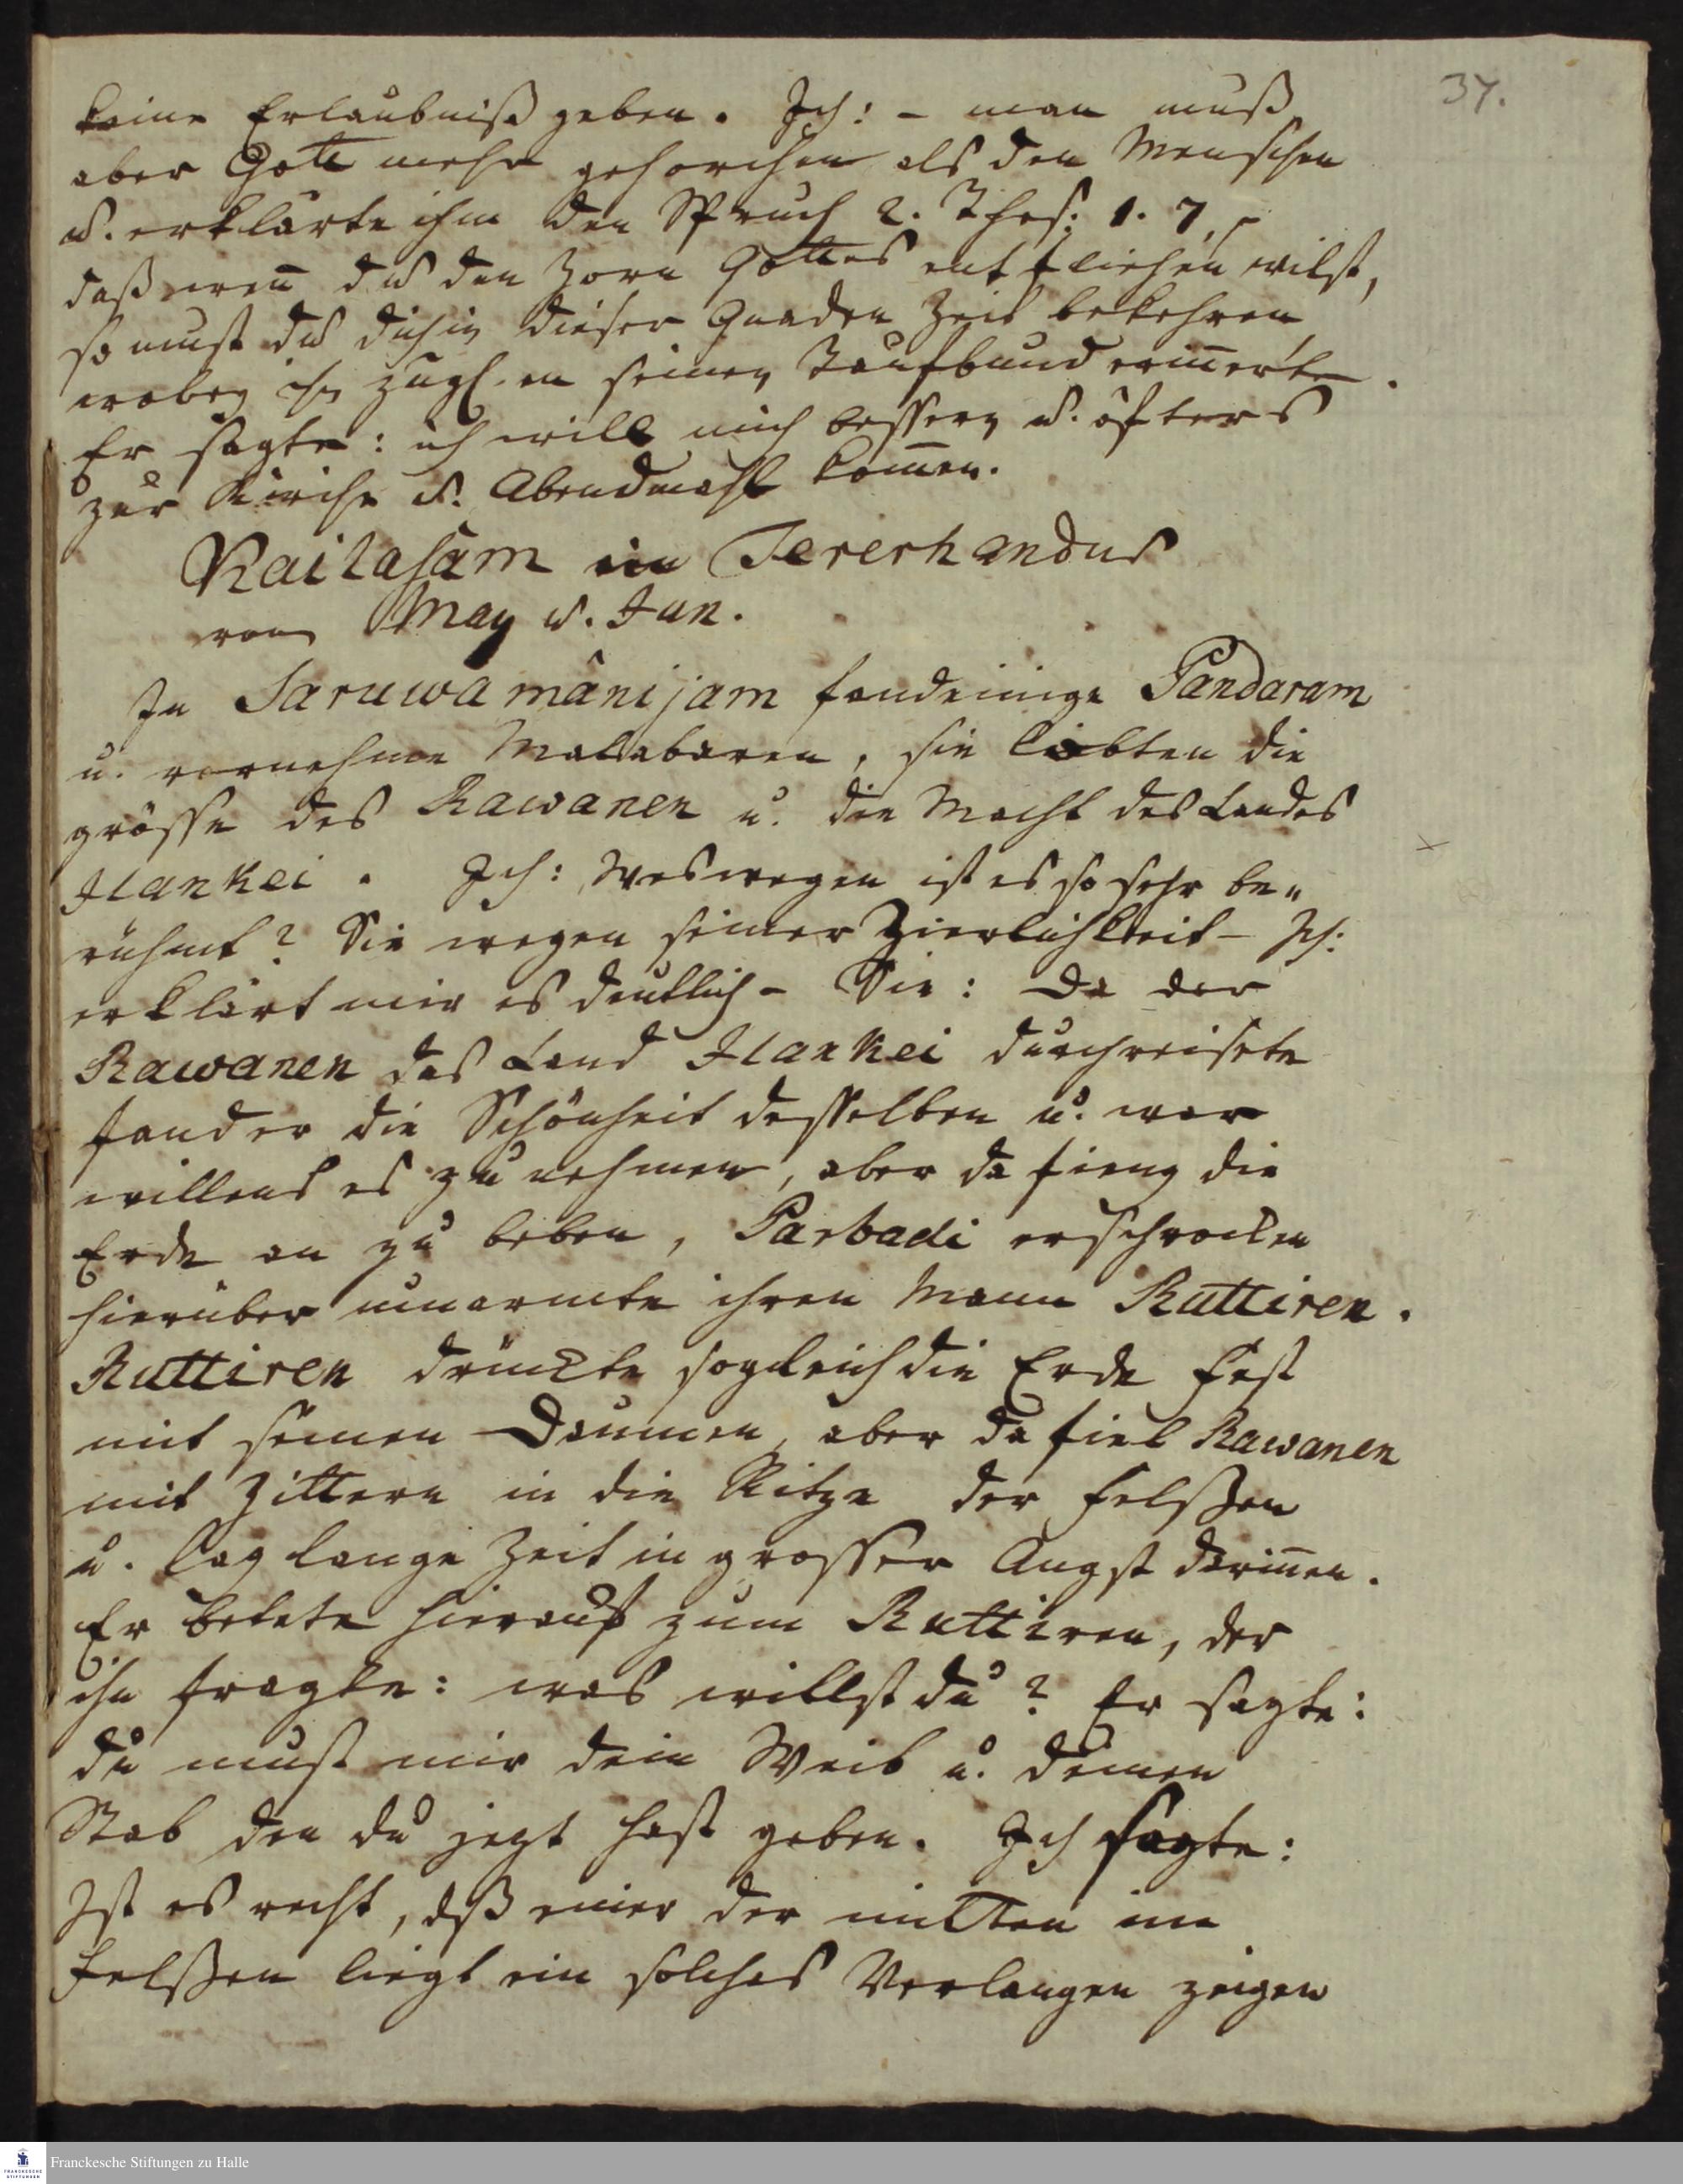 37.
keine Erlaubniß geben. Ich: - man muß
aber Gott mehr gehorchen als den Menschen
u. erklärte ihm den Spruch 2. Thes: 1. 7,
daß wen̄ du den Zorn Gottes entfliehen wilst,
so must du dich in dieser Gnaden Zeit bekehren
wobey ihn zugl. an seinen Taufbund erin̄erte.
Er sagte: ich will mich bessern u. öfters
zur Kirche u. Abendmahl kom̄en.
Kailasam im Tererhandus
von May u. Jun.
In Saruwamânijam fand einige Pandaram
u. vornehme Malabaren, sie lobten die
grösse des Rawanen u. die Macht des Landes
Ilankei. Ich: Weswegen ist es so sehr be„
rühmt? Sie wegen seiner Zierlichkeit - Ich:
erklärt mir es deutlich - Sie: Da der
Rawanen das Land Ilankei durchreisete
fand er die Schönheit desselben u. war
willens es zu nehmen, aber da fieng die
Erde an zu beben, Parbadi erschrocken
hierüber umarmte ihren Mann Ruttiren.
Ruttiren drückte sogleich die Erde fest
mit seinen Daumen, aber da fiel Rawanen
mit Zittern in die Ritze der Felßen
u. lag lange Zeit in grosser Angst darin̄en.
Er betete hierauf zum Ruttiren, der
ihn fragte: was willst du? Er sagte:
du must mir dein Weib u. deinen
Stab den du jezt hast geben. Ich sagte:
Ist es recht, dß einer der mitten im
Felßen liegt ein solches Verlangen zeigen
Franckesche Stiftungen zu Halle
FRANCKESCHE
STIFTUNGEN